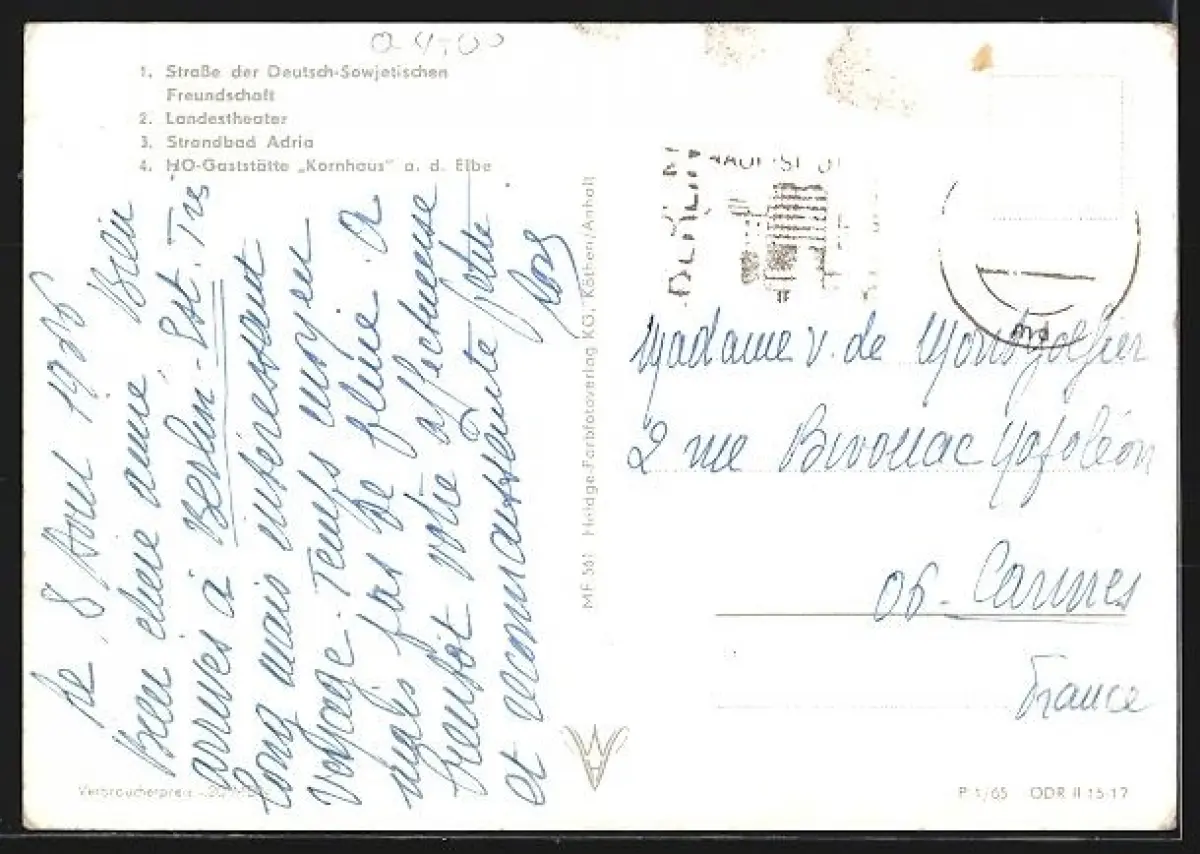 1. Straße der Deutsch-Sowjetischen
Freundschaft
2. Landestheater
3. Strandbad Adria
4. HO-Gaststätte „Kornhaus" a. d. Elbe
Le 8 Août 1966
Bien chère amie, Bien
arrivés à Berlin-Est. Très
long mais intéressant
voyage. Temps moyen
mais pas de pluie. A
bientôt votre affectueuse
et reconnaissante petite
MF 561 Heldge-Farbfotoverlag KG, Köthen/Anhalt
Madame V. de Montgolfier
2 rue Bivouac Napoléon
06 - Cannes
France
Verbraucherpreis
P 1/65 ODR II 15-17